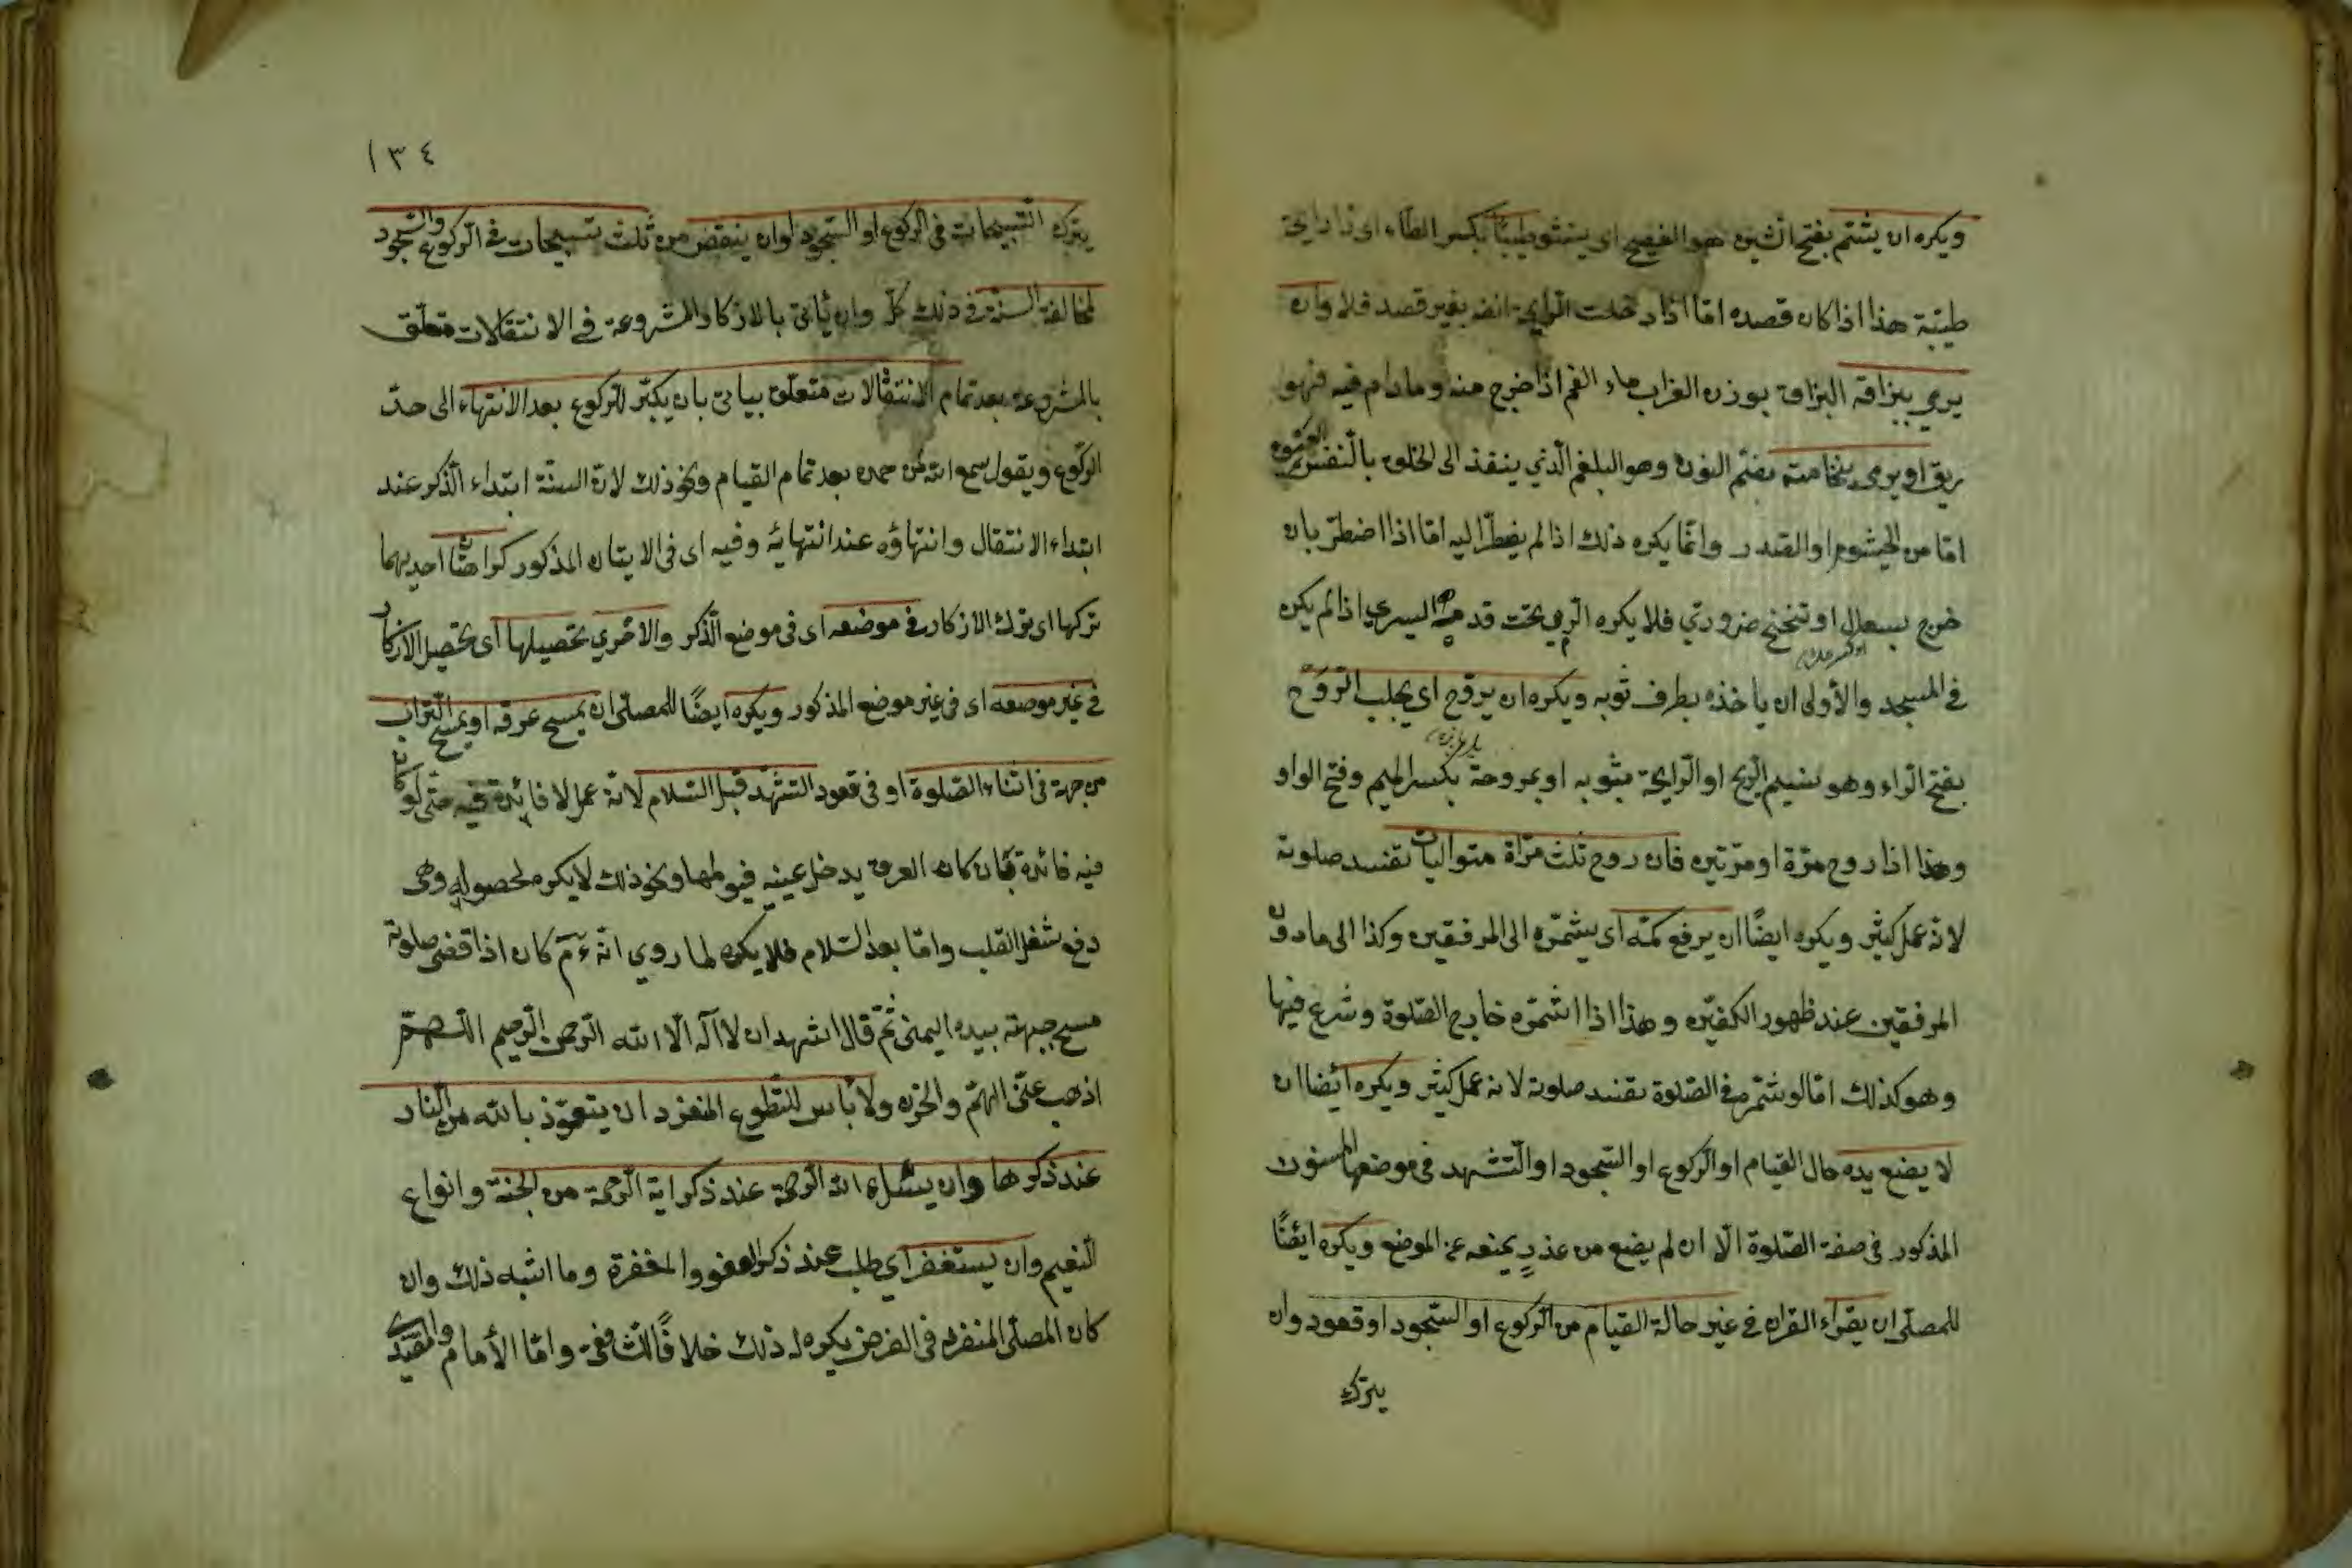 ويكره ان يشتم بفتح الشين هو الفصيح اى ينشو طيبًا بكسر الطاء اى ذا رايحة
طيبة هذا اذا كان قصده امّا اذا دخلت الرايحة انفه بغير قصد فلا وان
يرمي ببزاقه البزاق بوزن الغراب ماء الفم اذا خرج منه وما دام فيه فهو
ريق او يرمى بنخامته بضمّ النون وهو البلغم الّذي ينقذ الى الحلق بالنفس
امّا من الخيشوم او الصّدر وانّما يكره ذلك اذا لم يضطرّ اليه امّا اذا اضطرّ بان
خرج بسعال او تنحنح ضروريّ فلا يكره الرّمي تحت قدمه اليسري اذا لم يكن
في المسجد والأولى ان ياخذه بطرف ثوبه ويكره ان يروّح اى يجلب الرّوح
بفتح الراء وهو نسيم الريح او الرايحة بثوبه او بمروحة بكسر الميم وفتح الواو
وهذا اذا روح مرّة او مرّتين فان روح ثلث مرّاة متواليات تفسد صلوته
لانه عمل كثير ويكره ايضًا ان يرفع كمّه اى يشمّره الى المرفقين وكذا الى ما دون
المرفقين عند ظهور الكفّين وهذا اذا اشمّره خارج الصّلوة وشرع فيها
وهو كذلك امّا لو شمّر في الصّلوة تفسد صلوته لانه عمل كثير ويكره ايضا ان
لا يضع يده حال القيام او الركوع او السّجود او التّشهد في موضعها المسنون
المذكور في صفة الصّلوة الّا ان لم يضع من عذرٍ يمنعه عن الموضع ويكره ايضًا
للمصلّى ان يقراء القران في غير حالة القيام من الركوع او السّجود او قعود وان
يترك
١٣٤
يترك التّسبيحات في الركوع او السّجود او ان ينقض من ثلث تسبيحات في الركوع والسّجود
لمخالفة السنّة في ذلك كلّ وان يأتى بالاذكار المشروعة في الانتقالات متعلّق
بالمشروعة بعد تمام الانتقالات متعلّق بياتى بان يكبّر للركوع بعد الانتهاء الى حدّ
الركوع ويقول سمع الله لمن حمده بعد تمام القيام ونحو ذلك لانّ السنّة ابتداء الذّكر عند
ابتداء الانتقال وانتهاؤه عند انتهائه وفيه اى في الايتان المذكور كراهتان احديهما
تركها اى ترك الاذكار في موضعه اى في موضع الذّكر والاخري تحصيلها اى تحصيل الاذكار
في غير موضعه اى في غير موضع المذكور ويكره ايضًا للمصلّى ان يمسح عرقه او يمسح التّراب
من جبهة في اثناء الصّلوة او في قعود التشهّد قبل السّلام لانه عمل لا فائدة فيه حتى لو كان
فيه فائدة بان كان العرق يدخل عينيه فيولمها ونحو ذلك لا يكره لحصوله وهى
دفع شغل القلب وامّا بعد السّلام فلا يكره لما روي انّه ءم كان اذا قضى صلوته
مسح جبهته بيده اليمنى ثمّ قال اشهد ان لا اله الّا الله الرّحمن الرّحيم اللّهمّ
اذهب عنّى الهمّ والحزن ولا بأس للتّطوع المنفرد ان يتعوّذ بالله من النّار
عند ذكرها وان يسئل الله الرّحمة عند ذكر اية الرّحمة من الجنّة وانواع
النّعيم وان يستغفر اى طلب عند ذكر العفو والمغفرة وما اشبه ذلك وان
كان المصلّى المنفرد في الفرض يكره له ذلك خلافًا للشّافعى وامّا الأمام والمقتدى